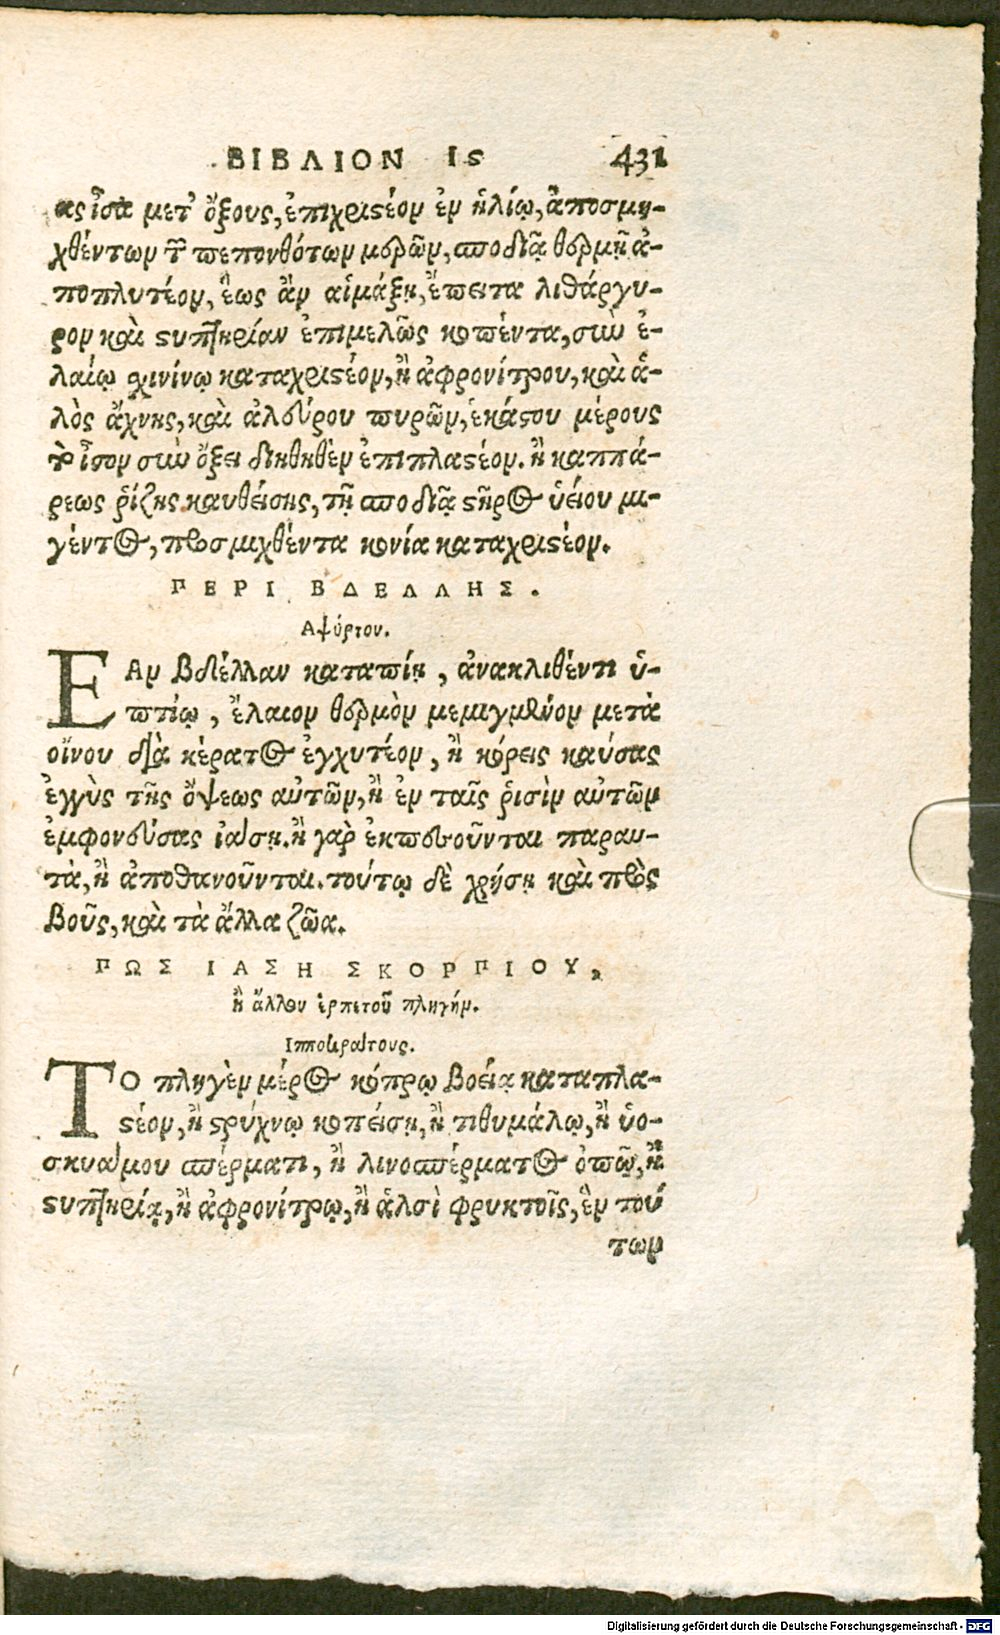 ΒΙΒΛΙΟΝ Ις 431
ας ἴσα μετ' ὄξους, ἐπιχριστέον ἐν ἡλίῳ, ἀποσμη-
χθέντων τῶν πεπονθότων μερῶν, σποδιᾷ θερμῇ ἀ-
ποπλυτέον, ἕως ἂν αἱμάξῃ, ἔπειτα λιθάργυ-
ρον καὶ στυπτηρίαν ἐπιμελῶς κοπέντα, σὺν ἐ-
λαίῳ χινίνῳ καταχριστέον, ἢ ἀφρονίτρου, καὶ ἁ-
λὸς ἄχνης, καὶ ἀλεύρου πυρῶν, ἑκάστου μέρους
τὸ ἴσον σὺν ὄξει διηθηθὲν ἐπιπλαστέον. ἢ καππά-
ρεως ῥίζης καυθείσης, τῇ σποδιᾷ στῆρος ὑείου μι-
γέντος, προσμιχθέντα κονία καταχριστέον.
ΠΕΡΙ ΒΔΕΛΛΗΣ.
Αψύρτου.
ΕΑν βδέλλαν καταπίῃ, ἀνακλιθέντι ὑ-
πτίῳ, ἔλαιον θερμὸν μεμιγμένον μετὰ
οἴνου διὰ κέρατος ἐγχυτέον, ἢ κόρεις καύσας
ἐγγὺς τῆς ὄψεως αὐτῶν, ἢ ἐν ταῖς ῥισὶν αὐτῶν
ἐμφονεύσας ἰάσῃ. ἢ γὰρ ἐκπεσοῦνται παραυ-
τὰ, ἢ ἀποθανοῦνται. τούτῳ δὲ χρήσῃ καὶ πρὸς
βοῦς, καὶ τὰ ἄλλα ζῶα.
ΠΩΣ ΙΑΣΗ ΣΚΟΡΠΙΟΥ,
ἢ ἄλλου ἑρπετοῦ πληγήν.
Ιπποκράτους.
ΤΟ πληγὲν μέρος κόπρῳ βοείᾳ καταπλα-
στέον, ἢ στρύχνῳ κοπείσῃ, ἢ τιθυμάλῳ, ἢ ὑο-
σκυάμου σπέρματι, ἢ λινοσπέρματος ὀπῷ, ἢ
στυπτηρίᾳ, ἢ ἀφρονίτρῳ, ἢ ἁλσὶ φρυκτοῖς, ἓν τού
των
Digitalisierung gefördert durch die Deutsche Forschungsgemeinschaft - DFG